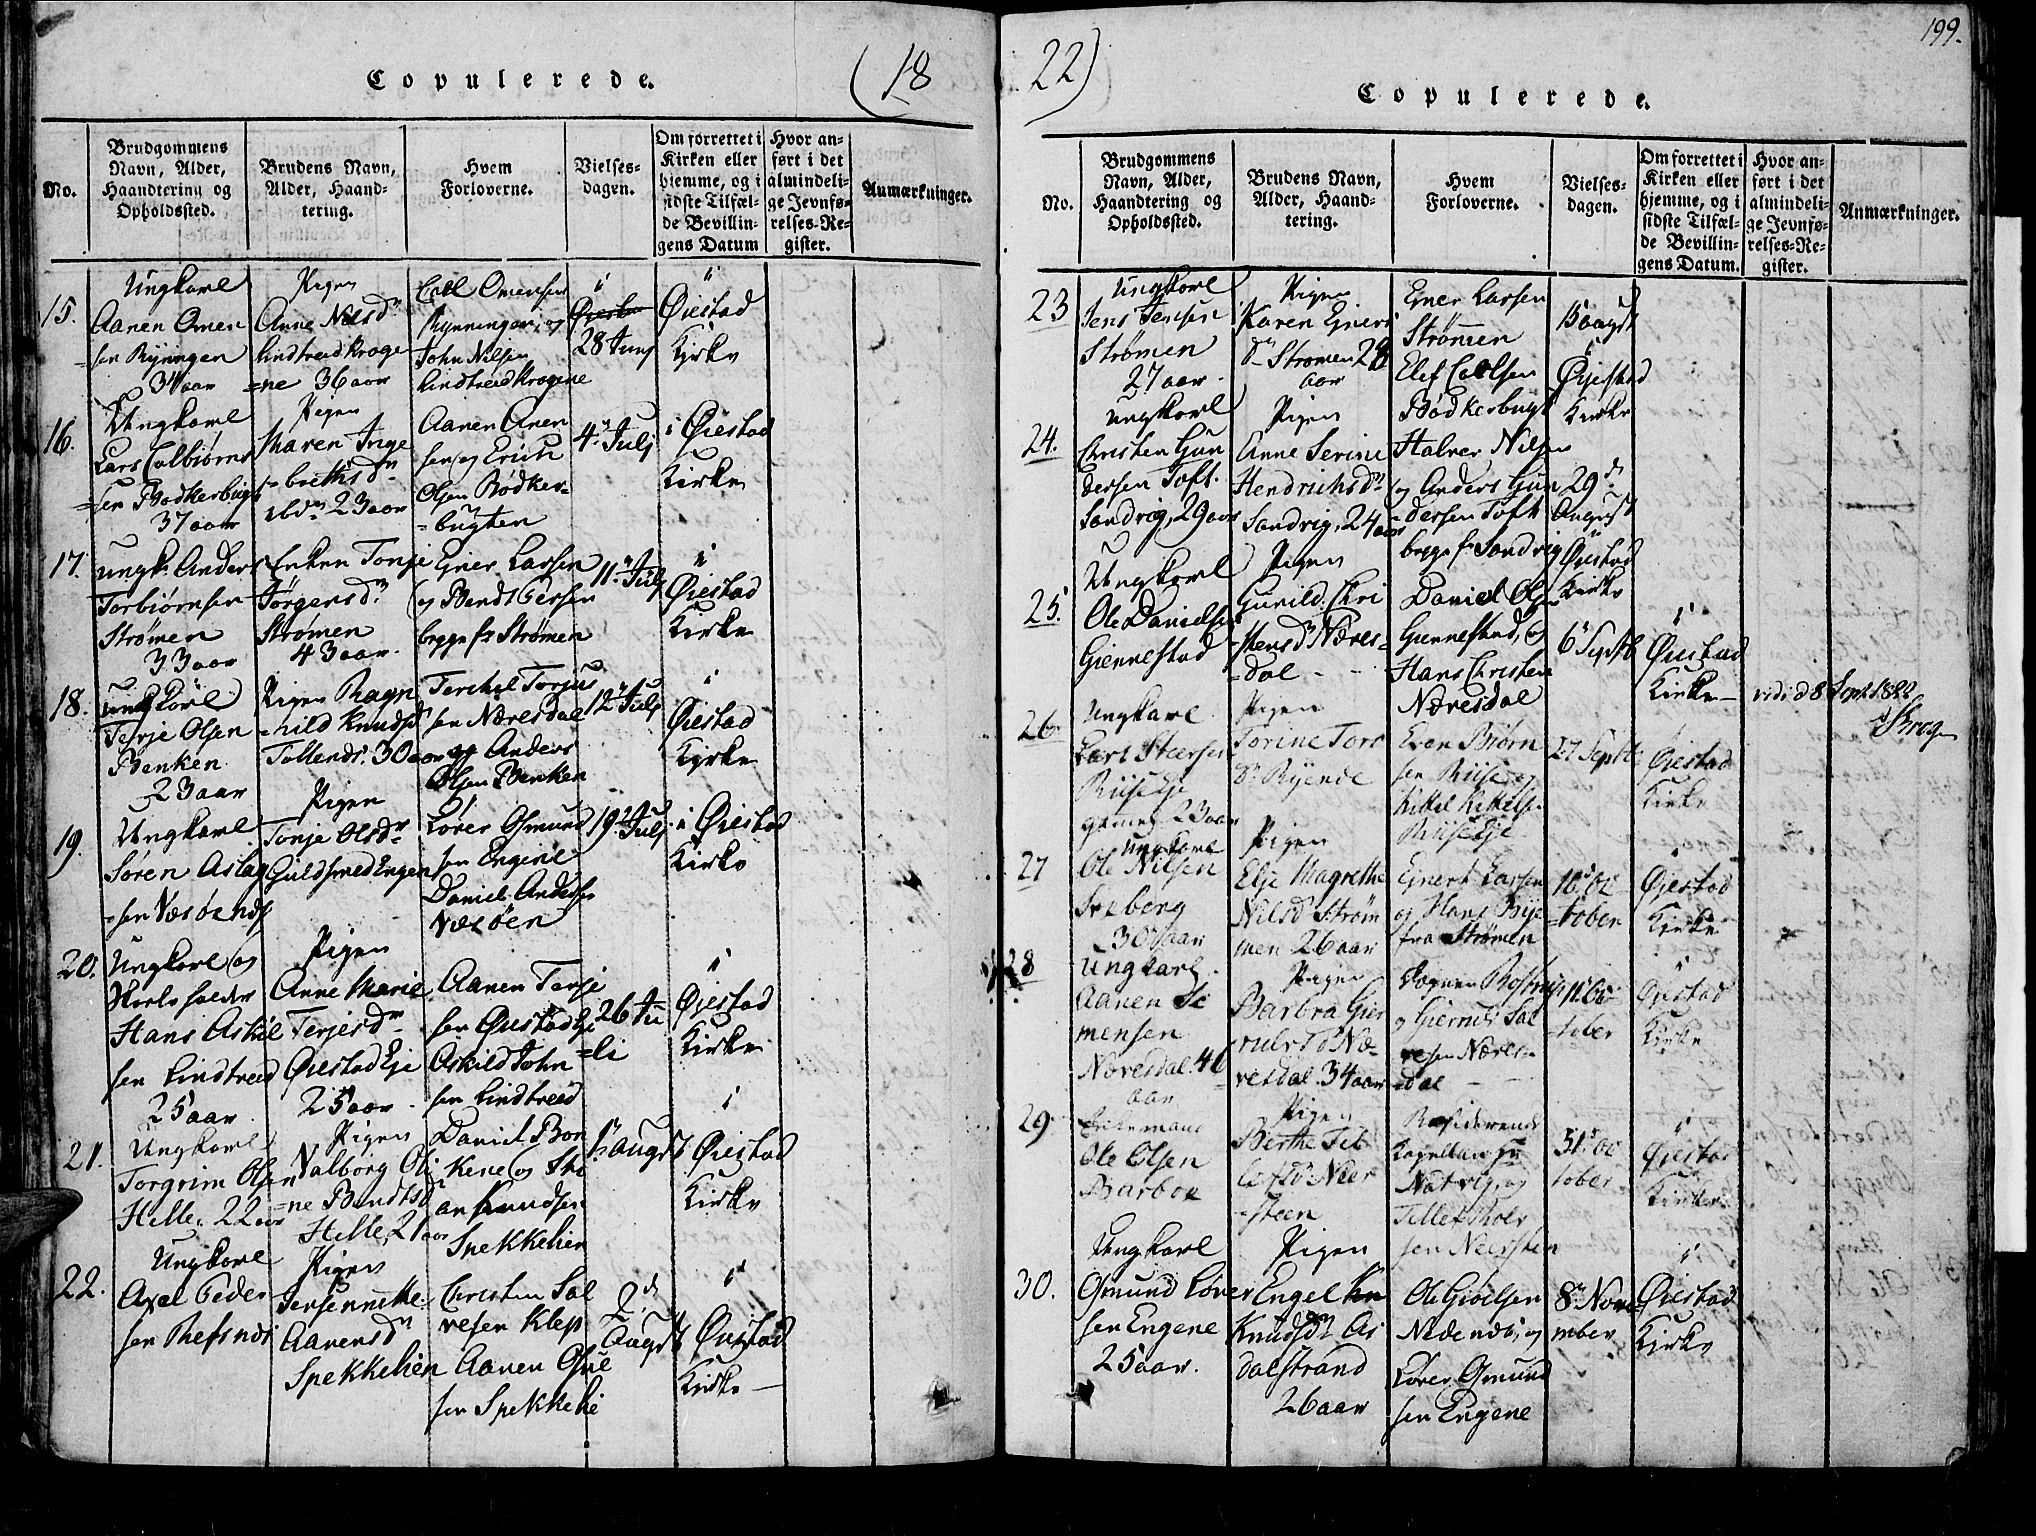 Copulerede.
(18
No.
Brudgommens Navn, Alder, Haandtering og Opholdssted.
Brudens Navn, Alder, Haandtering.
Hvem Forloverne.
Vielsesdagen.
Om forrettet i Kirken eller hjemme, og i sidste Tilfælde Bevillingens Datum
Hvor anført i det almindelige Jevnførelses-Register.
Anmærkninger.
15.
Ungkarl
Aanen Omen
sen Rÿningen
Pigen
Anne Nilsd
Lindtveid kroge
=ne 36 aar
Omensen
John Nilsen
28 Junj
i
Øiestad
Kirke
16.
Ungkarl
Lars Colbiørns
=sen Bødkerbugt
37 aar
Pigen
Maren Inge
brethsd
ibdm 23 aar
Aanen Anen
sen og Erich
Olsen Bødker=
=bugten
4 Julj
i Øiestad
Kirke
17.
Ungk. Anders
Torbiørnsen
Strømen
33 aar
Enken Tonje
Jørgensd
Strømen
43 aar.
Ejner Larsen
og Bendt
begge fr Strømen
11 Julj
i
Øiestad
Kirke
18.
Ungkarl
Terje Olsen
Benken
23 aar
Pigen Ragn
=hild Knudsd
30 aar
Terchel Torjus
sen Næresdal
og Anders
Olsen Benken
12 Julj
i
Øiestad
Kirke
19.
Ungkarl
Søren Aslag
=sen
Pigen
Tonje Olsd
Guldsmedengen
Lover Osmund
sen Engene
Daniel Anders
19 Julj
i Øiestad
Kirke
20.
Ungkarl og
Hans Askil
sen Lindtveid
25 aar
Pigen
Anne Marie
Terjesd
Øiestad Eje
25 aar
Aanen Terje
sen Øiestad Ej
Askild John
sen Lindtveid
26 Ju
=li
i
Øiestad
Kirke
21.
Ungkarl
Torgrim Olsen
Helle. 22 aar
Pigen
Valborg Oli
=ne Bendtsd
Helle, 21 aar
Daniel
an Knudsen
Spekkelien
1 Augst
i
Øiestad
Kirke
22.
Ungkarl
Axel Peder
sen Refsnes
Pigen
Aanensd
Spekkelien
Christen Sal
vesen Klep
Aanen
sen Spekkelie
2
Augst
i
Øiestad
Kirke
22)
199.
Copulerede.
No.
Brudgommens Navn, Alder, Haandtering og Opholdssted.
Brudens Navn, Alder, Haandtering.
Hvem Forloverne.
Vielsesdagen.
Om forrettet i Kirken eller hjemme, og i sidste Tilfælde Bevillingens Datum.
Hvor anført i det almindelige Jevnførelses-Register.
Anmærkninger.
23
Ungkarl
Jens Jensen
Strømen
27 aar
Pigen
Karen Ejners
d Strømen 28
aar
Ejner Larsen
Strømen
Elef
Bødkerbugt
Augst
i
Øiestad
Kirke
24.
Ungkarl
Christen Gun
dersen Toft.
Sandvig, 29 aar
Pigen
Anne Serine
Hendrichsd
Sandvig, 24 aar
Halver Nilsen
og Anders Gun
dersen Toft
begge fr Sandvig
29
August
i
Øiestad
Kirke
25.
Ungkarl
Ole Danielsen
Giennestad
Pigen
Gunild Chri
stensd Næres=
=dal
Daniel Olsen
Giennestad, og
Hans Christen
Næresdal
6 Septb
i
Øiestad
Kirke
vidi d 8 Sept 1822
Krog
26
Ungkarl
Lars
23 aar
Pigen
Torine Tors
d Rÿende
Even Biørn
sen Riise, og
Kittel Kittelse
Riise Eje
27 Septb
Øiestad
Kirke
27
Ungkarl
Ole Nilsen
30 aar
Pigen
Else Magrethe
Nilsd Strøm
men 26 aar
Ejnert Larsen
og Hans
fra Strømen
10 Oc
=tober
i
Øiestad
Kirke
28
Ungkarl
Aanen Si
mensen
Næresdal. 46
aar
Pigen
Barbra Gier
Næ=
resdal. 34 aar
Vogner
og Giernuls Sal
vesen Næres=
=dal
11 Oc
tober
i
Øiestad
Kirke
29
Enkemand
Ole Olsen
Barboe
Pigen
Berthe Tel
lefsd Neer
steen
Residerende
Kapellan Hr
Natvig, og
Tellef Roer
sen Neersten
31 Oc
tober
i
Øiestad
Kirke
30.
Ungkarl
Osmund Lover
sen Engene
25 aar.
Pigen
Engel
Knudsd As
dalstrand
26 aar
Ole Gioelsen
Nedenes, og
Lover Osmund
sen Engene
8 Nove
mber
i
Øiestad
Kirke